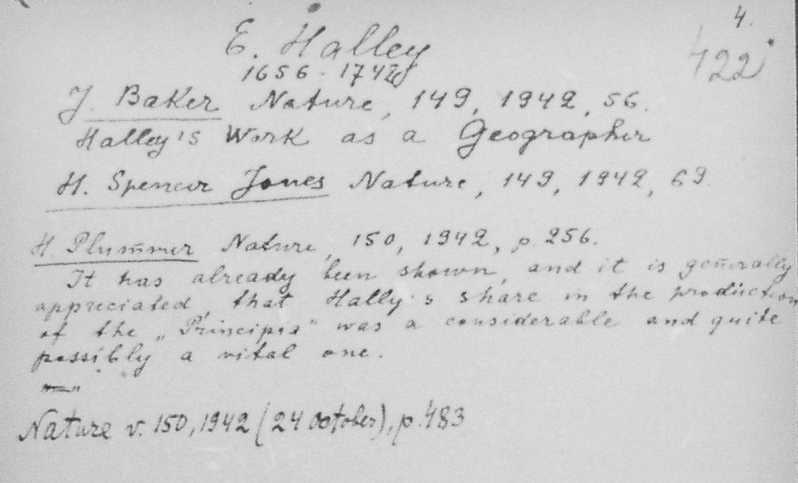 4.
E. Halley
422
1656 - 1742
J. Baker Nature, 149, 1942, 56.
Halley's Work as a Geographer
H. Spencer Jones Nature, 149, 1942, 69
H. Plummer Nature, 150, 1942, p. 256.
It has already been shown, and it is generally
appreciated that Hally's share in the production
of the „Principia" was a considerable and quite
possibly a vital one.
Nature v. 150, 1942 (24 October), p. 483